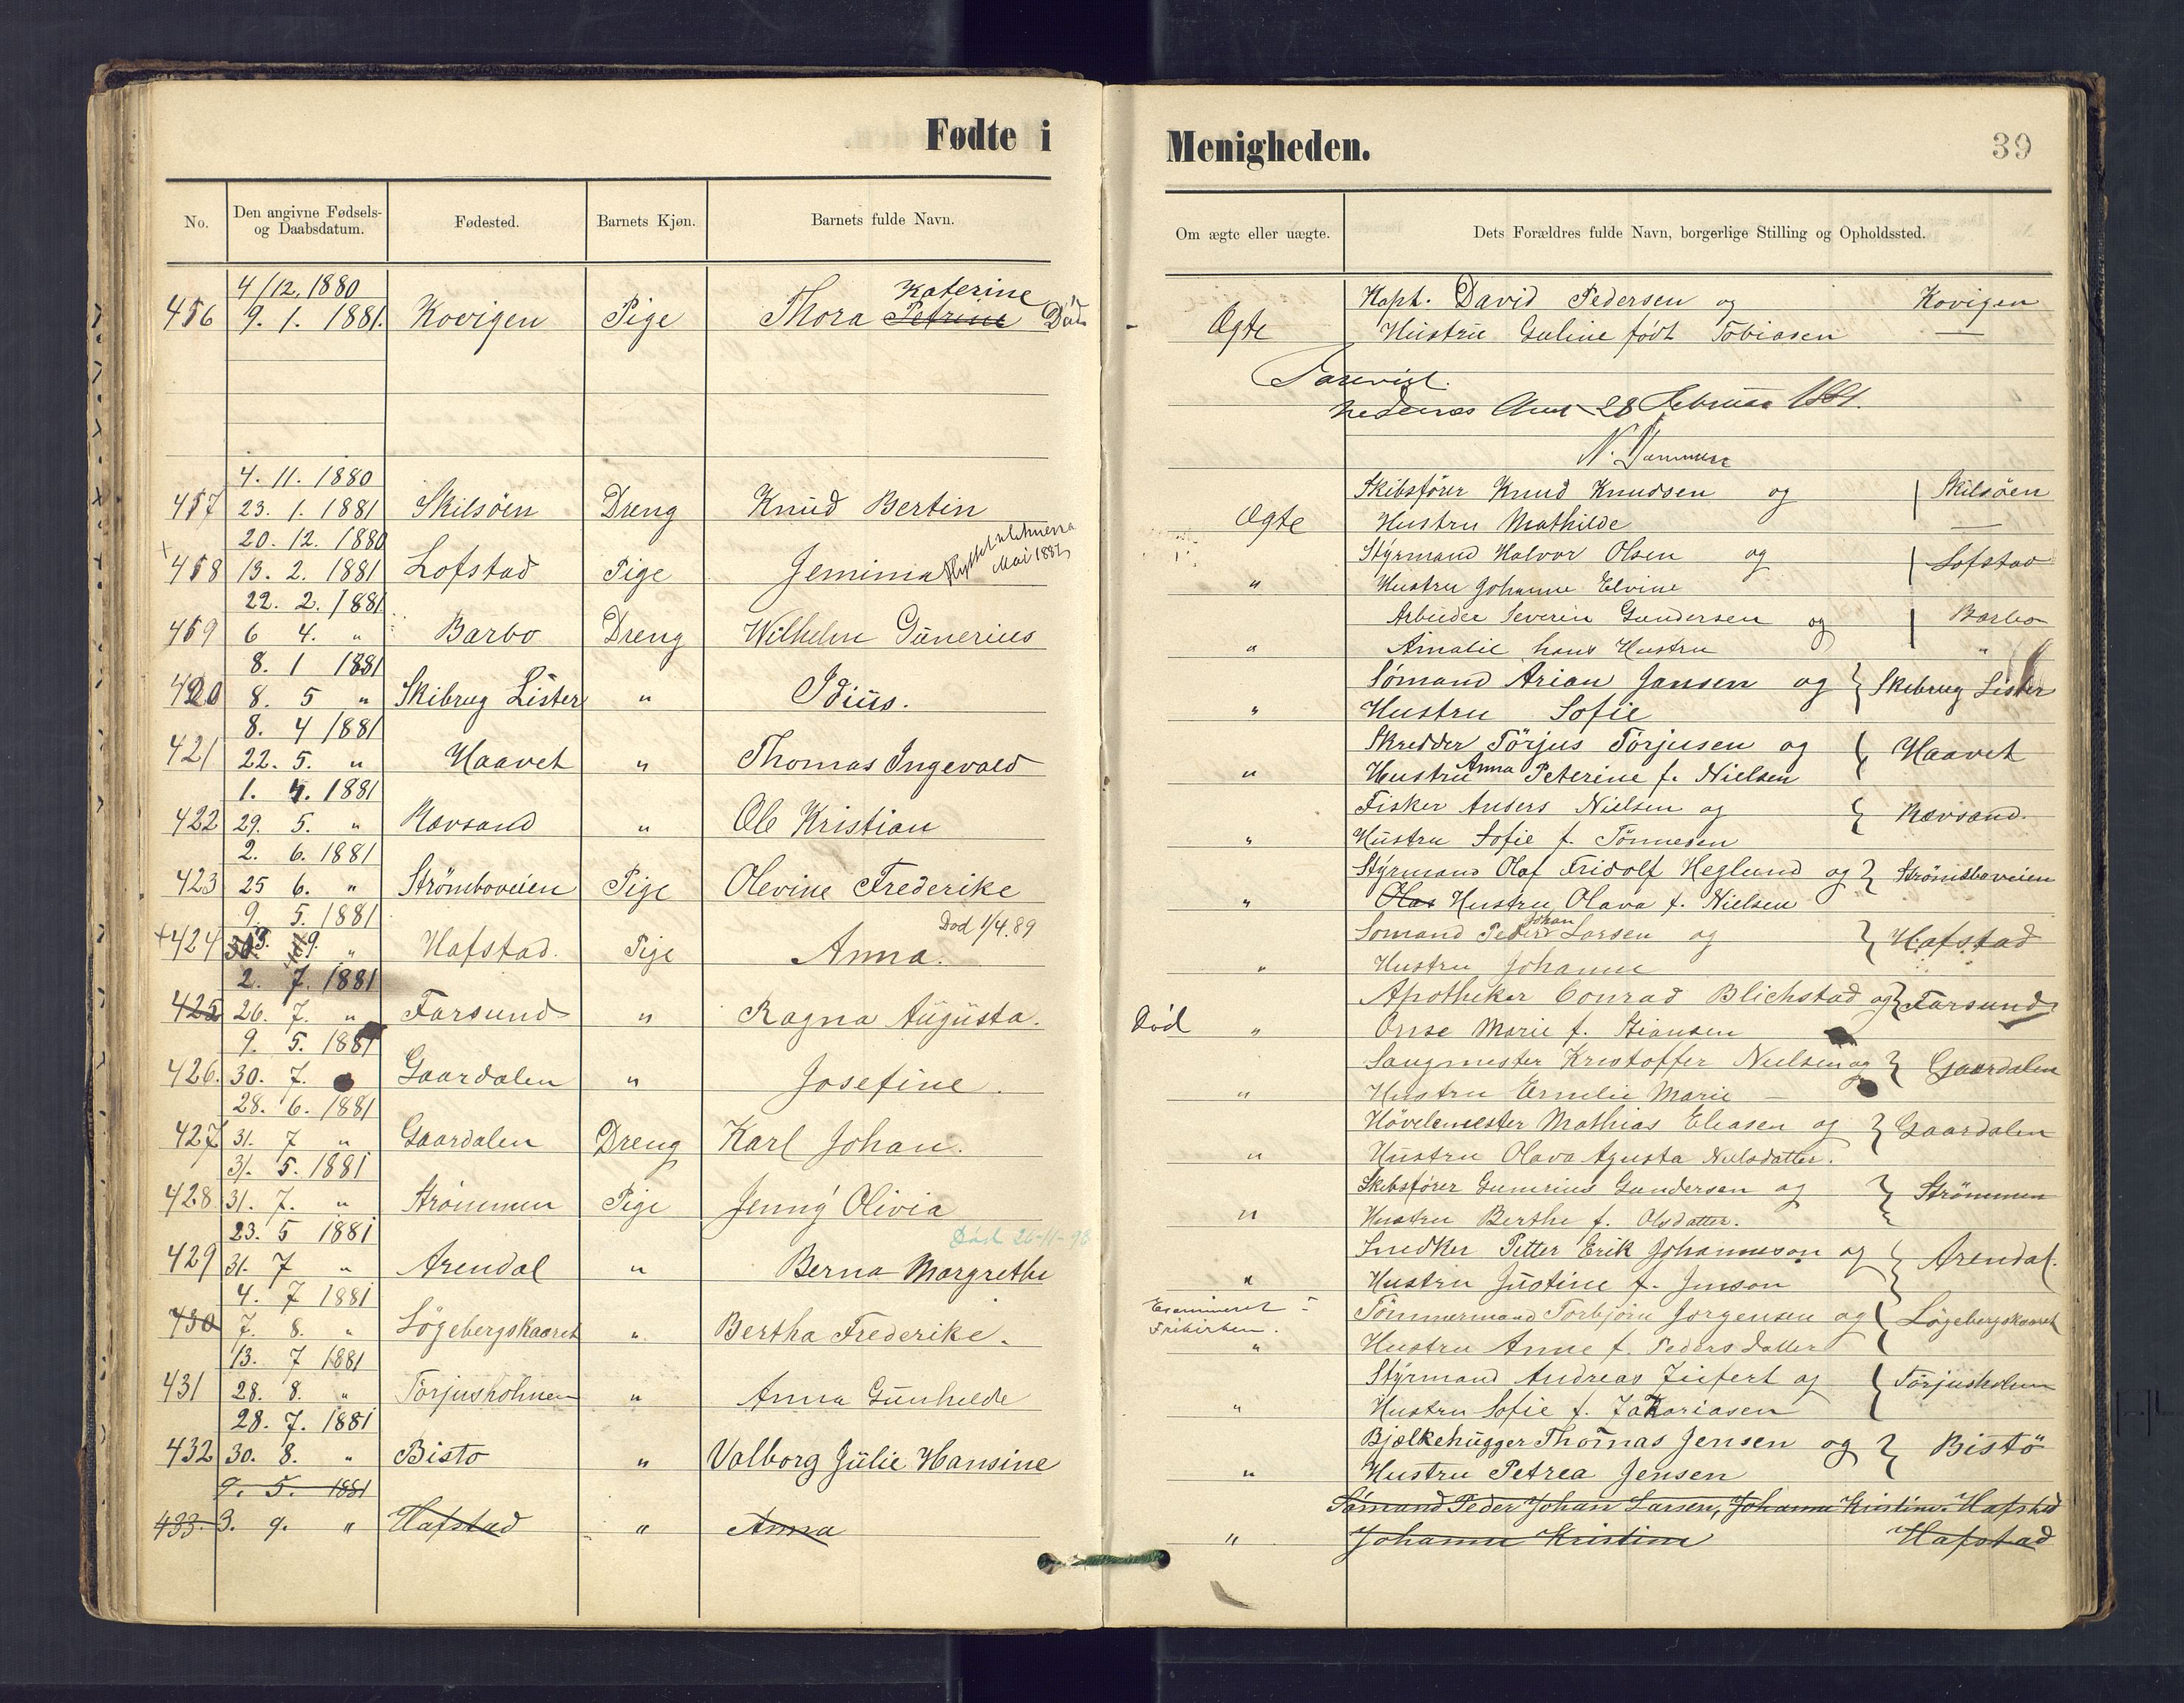 Fødte i Menigheden.
39
No.
Den angivne Fødsels- og Daabsdatum.
Fødested.
Barnets Kjøn.
Barnets fulde Navn.
Om ægte eller uægte.
Dets Forældres fulde Navn, borgerlige Stilling og Opholdssted.
4/12. 1880 Katerine Kapt. David Pedersen og Kovigen
416 9. 1. 1881. Kovigen Pige Thora Petrine Død Ægte Hustru Guline født Tobiasen —
Nedenes Amt 28 Februar 1881.
4. 11. 1880 Skibsfører Knud Knudsen og Skilsöen
417 23. 1. 1881 Skilsöen Dreng Knud Bertin Ægte Hustru Mathilde —
20. 12. 1880 Styrmand Halvor Olsen og Lofstad
418 13. 2. 1881 Lofstad Pige Jemima Mai 1882 " Hustru Johanne Elvine
22. 2. 1881 Arbeider Severin Gundersen og Barbo
419 6 4. " Barbo Dreng Wilhelm Gunerius " Amalie hans Hustru "
8. 1 1881 Sømand Arian Jansen og Skibrug Lister
420 8. 5 " Skibrug Lister " Idius. " Hustru Sofie
8. 4 1881 Skredder Törjus Torjusen og Haavet
421 22. 5. " Haavet " Thomas Ingevald " Hustru Anna Peterine f. Nielsen
1. 4. 1881 Fisker Anders Nielsen og Rævsand.
422 29. 5. " Rævsand " Ole Kristian " Hustru Sofie f. Tönnesen
2. 6. 1881 Styrmand Olaf Fridolf Heglund og Strömsboveien
423 25 6. " Strömboveien Pige Olevine Frederike " Olas Hustru Olava f. Nielsen
9. 5. 1881 Död 1/4.89 Sömand Peder Johan Larsen og Hafstad
424 3. 9. " Hafstad. Pige Anna. " Hustru Johanne
2. 7. 1881 Apotheker Conrad Blichstad og Farsund
425 26. 7. " Farsund " Ragna Augusta. Död "
9. 5. 1881 Saugmester Kristoffer Nielsen og Gaardalen
426. 30. 7. Gaardalen " Josefine. " Hustru Emelie Marie —
28. 6. 1881 Hövelemester Mathias Eleasen og Gaardalen
427 31. 7 " Gaardalen Dreng Karl Johan. " Hustru Olava Agusta Nielsdatter.
31. 5. 1881 Skibsfører Gunerius Gundersen og Strömmen
428 31. 7. " Strömmen Pige Jenny Olivia " Hustru Berthe f. Olsdatter.
23. 5 1881 Död 26-11-98 Snedker Petter Erik Johanneson og Arendal.
429 31. 7 " Arendal " Berna Margrethe " Hustru Justine f. Jonson
4. 7 1881 Tömmermand Torbjörn Jorgensen og Lögebergskaaret
430 7. 8. " Lögebergskaaret " Bertha Frederike. " Hustru Anne f. Pedersdatter
Frikirken.
13. 7 1881 Styrmand Andreas Ziefert og Torjusholmen
431 28. 8. " Torjusholmen " Anna Gunhilde " Hustru Sofie f. Zakariasen
28. 7. 1881 Bjælkehugger Thomas Jensen og Bistö
432 30. 8. " Bistö " Valborg Julie Hansine " Hustru Petrea Jensen
9. 5. 1881 Sömand Peder Johan Larsen, Johanne Kristine Hafstad
433. 3. 9. " Hafstad " Anna " Johanne Kristine Hafstad